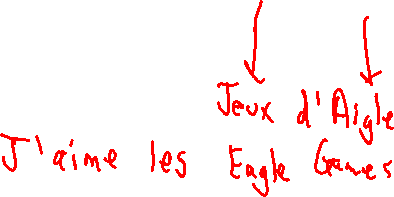 Jeux d'Aigle
J'aime les Eagle Games